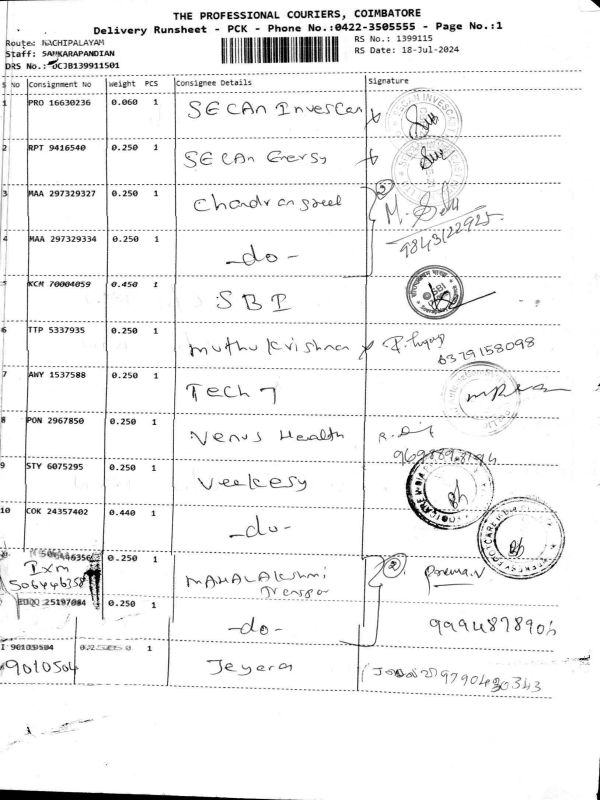 THE PROFESSIONAL COURIERS, COIMBATORE
Delivery Runsheet - PCK - Phone No.:0422-3505555 - Page No.:1
Route: NACHIPALAYAM
RS No.: 1399115
Staff: SANKARAPANDIAN
RS Date: 18-Jul-2024
DRS No.: OCJB139911501
S No Consignment No Weight PCS Consignee Details Signature
1 PRO 16630236 0.060 1 SECAn Invescan
2 RPT 9416540 0.250 1 SECAn Energy
3 MAA 297329327 0.250 1 chandran steel 2
9843122925
4 MAA 297329334 0.250 1 -do-
5 KCM 70004059 0.450 1 SBI
6 TTP 5337935 0.250 1 muthu krishnan
6379158098
7 AWY 1537588 0.250 1 Tech 7
8 PON 2967850 0.250 1 Venus Health
9698893194
9 STY 6075295 0.250 1 Veekesy
10 COK 24357402 0.440 1 -do-
0.250 1 MAHALAkshmi 2
506446358 Transpor
25197084 0.250 1 -do- 9994878904
1
9010504 Jeyaram 9790430343